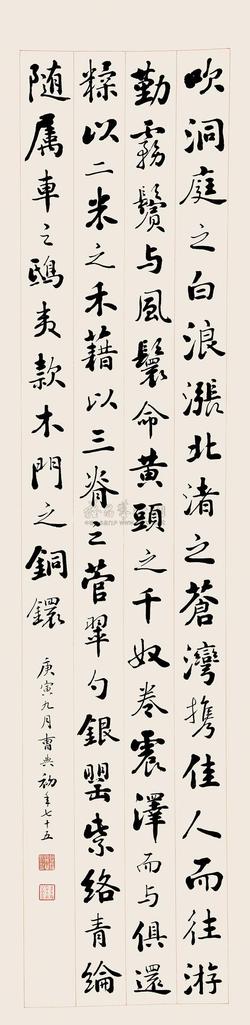 吹洞庭之白浪漲北渚之蒼灣携佳人而往游
勤霧鬢与風鬟命黄頭之千奴卷震澤而与俱還
糅以二米之禾藉以三脊之菅翠勺銀罌紫絡青綸
随属車之鴟夷款木門之銅鐶
庚寅九月曹典初年七十五